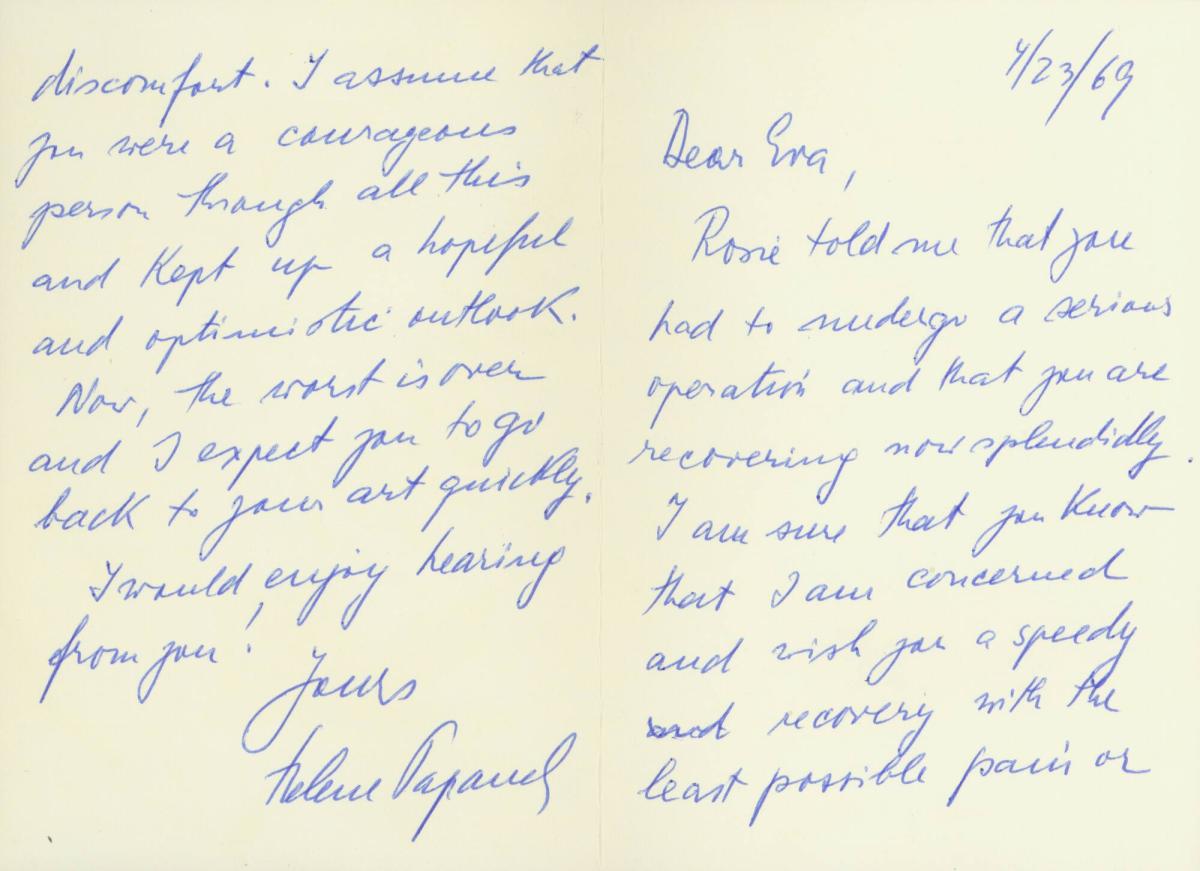 4/23/69
Dear Eva,
Rosie told me that you
had to undergo a serious
operation and that you are
recovering now splendidly.
I am sure that you Know
that I am concerned
and wish you a speedy
and recovery with the
least possible pain or
discomfort. I assume that
you were a courageous
person through all this
and Kept up a hopeful
and optimistic outlook.
Now, the worst is over
and I expect you to go
back to your art quickly.
I would enjoy hearing
from you!
Yours
Helene Papanek